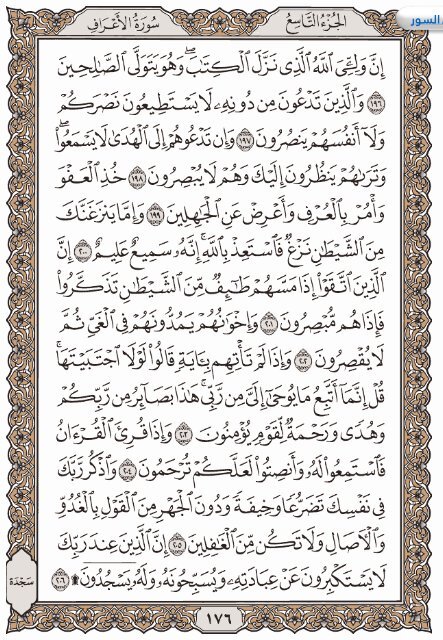 السور
الجزء التاسع
سورة الأعراف
إِنَّ وَلِـِّۧيَ ٱللَّهُ ٱلَّذِي نَزَّلَ ٱلْكِتَٰبَ ۖ وَهُوَ يَتَوَلَّى ٱلصَّٰلِحِينَ
١٩٦ وَٱلَّذِينَ تَدْعُونَ مِن دُونِهِۦ لَا يَسْتَطِيعُونَ نَصْرَكُمْ
وَلَآ أَنفُسَهُمْ يَنصُرُونَ ١٩٧ وَإِن تَدْعُوهُمْ إِلَى ٱلْهُدَىٰ لَا يَسْمَعُوا۟ ۖ
وَتَرَىٰهُمْ يَنظُرُونَ إِلَيْكَ وَهُمْ لَا يُبْصِرُونَ ١٩٨ خُذِ ٱلْعَفْوَ
وَأْمُرْ بِٱلْعُرْفِ وَأَعْرِضْ عَنِ ٱلْجَٰهِلِينَ ١٩٩ وَإِمَّا يَنزَغَنَّكَ
مِنَ ٱلشَّيْطَٰنِ نَزْغٌ فَٱسْتَعِذْ بِٱللَّهِ ۚ إِنَّهُۥ سَمِيعٌ عَلِيمٌ ٢٠٠ إِنَّ
ٱلَّذِينَ ٱتَّقَوْا۟ إِذَا مَسَّهُمْ طَٰٓئِفٌ مِّنَ ٱلشَّيْطَٰنِ تَذَكَّرُوا۟
فَإِذَا هُم مُّبْصِرُونَ ٢٠١ وَإِخْوَٰنُهُمْ يَمُدُّونَهُمْ فِي ٱلْغَيِّ ثُمَّ
لَا يُقْصِرُونَ ٢٠٢ وَإِذَا لَمْ تَأْتِهِم بِـَٔايَةٍ قَالُوا۟ لَوْلَا ٱجْتَبَيْتَهَا ۚ
قُلْ إِنَّمَآ أَتَّبِعُ مَا يُوحَىٰٓ إِلَيَّ مِن رَّبِّي ۚ هَٰذَا بَصَآئِرُ مِن رَّبِّكُمْ
وَهُدًى وَرَحْمَةٌ لِّقَوْمٍ يُؤْمِنُونَ ٢٠٣ وَإِذَا قُرِئَ ٱلْقُرْءَانُ
فَٱسْتَمِعُوا۟ لَهُۥ وَأَنصِتُوا۟ لَعَلَّكُمْ تُرْحَمُونَ ٢٠٤ وَٱذْكُر رَّبَّكَ
فِي نَفْسِكَ تَضَرُّعًا وَخِيفَةً وَدُونَ ٱلْجَهْرِ مِنَ ٱلْقَوْلِ بِٱلْغُدُوِّ
وَٱلْءَاصَالِ وَلَا تَكُن مِّنَ ٱلْغَٰفِلِينَ ٢٠٥ إِنَّ ٱلَّذِينَ عِندَ رَبِّكَ
لَا يَسْتَكْبِرُونَ عَنْ عِبَادَتِهِۦ وَيُسَبِّحُونَهُۥ وَلَهُۥ يَسْجُدُونَ ۩ ٢٠٦
سجدة
١٧٦